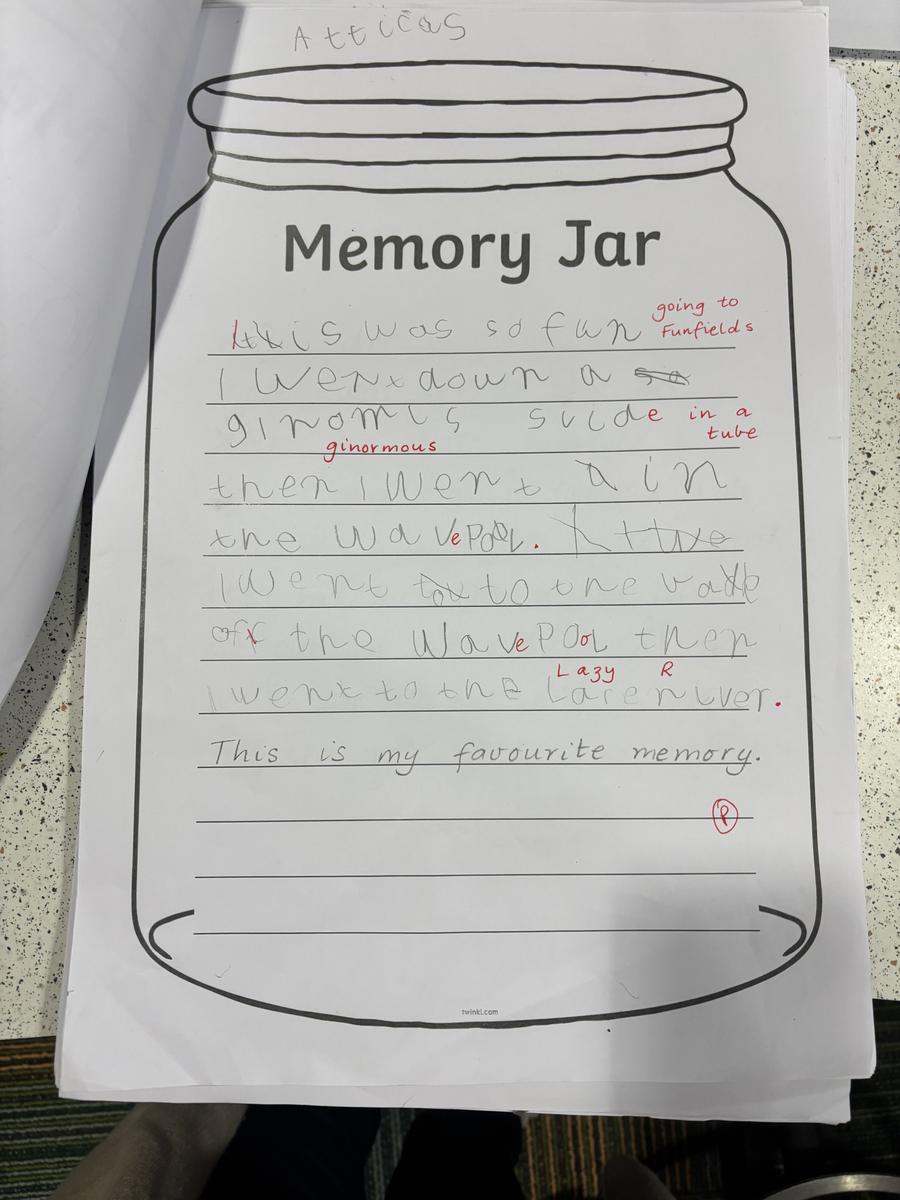 Atticas
Memory Jar
It this was so fun going to Funfields
I went down a so
ginomis slide in a tube
ginormous
then I went a in
the wavepool.
I went to to the
off the Wavepool then
Lazy R
I went to the Lare river.
This is my favourite memory.
P
twinkl.com